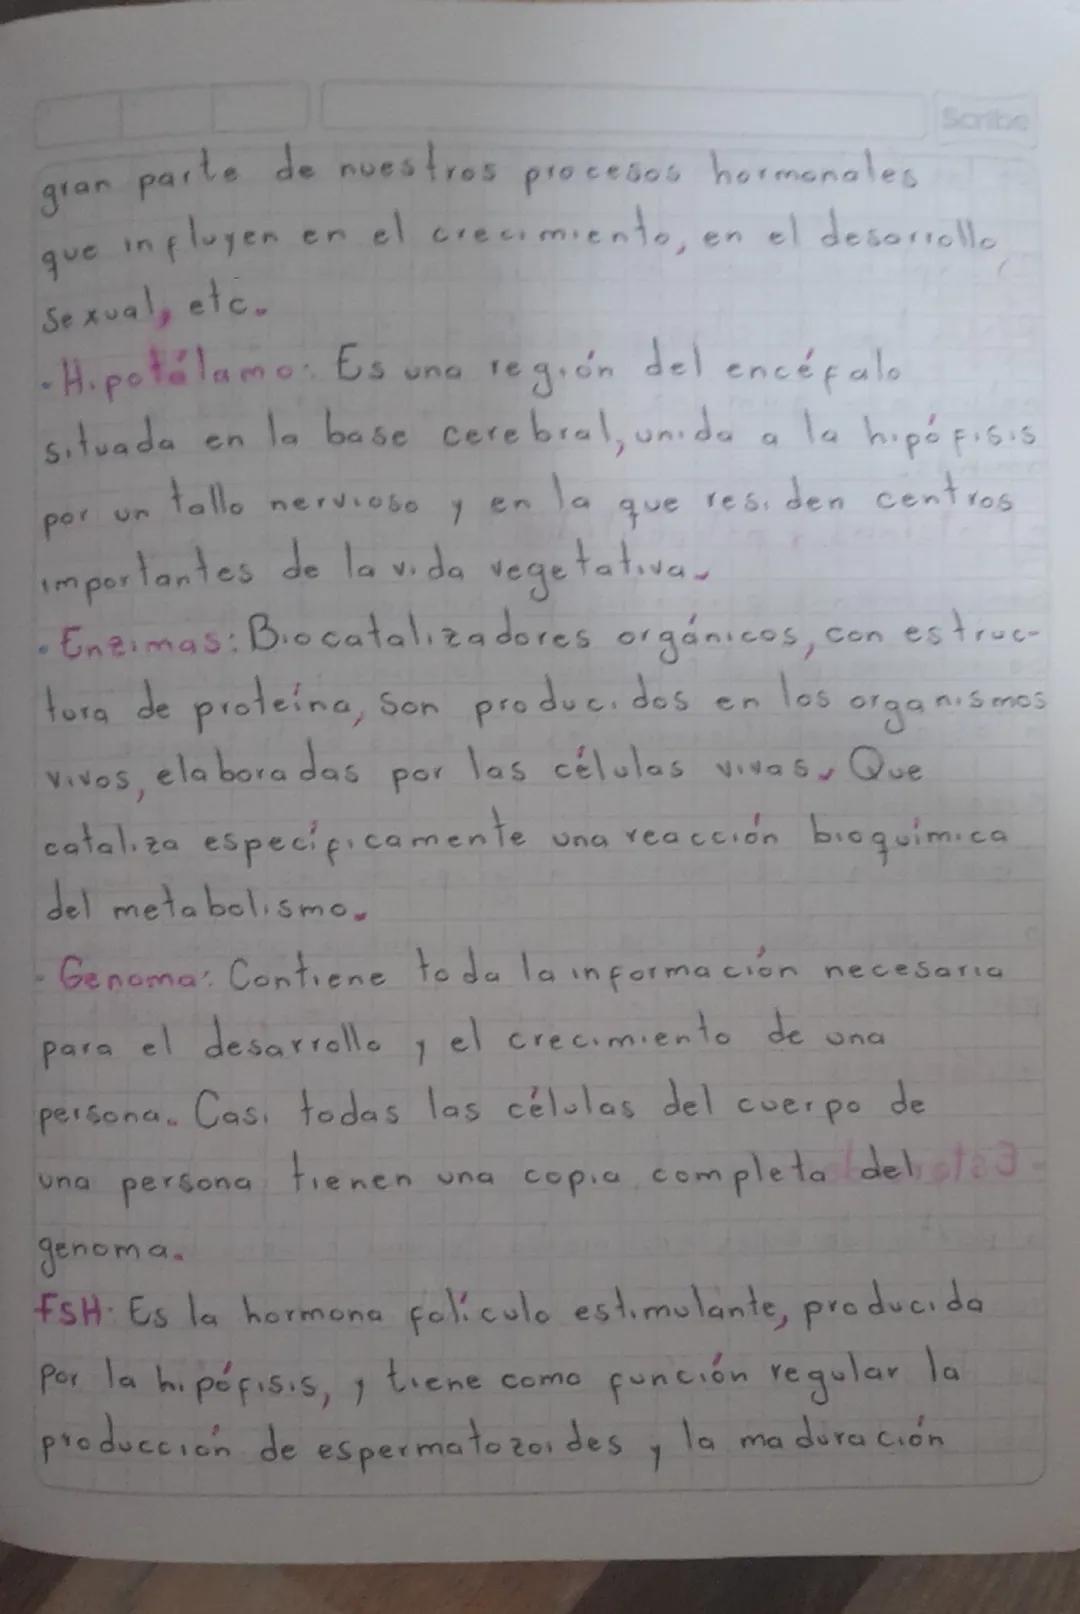 Scribe
gran parte de nuestros procesos hormonales
que influyen en el crecimiento, en el desarrollo
sexual, etc.
· Hipotálamo: Es una región del encéfalo
situada en la base cerebral, unida a la hipófisis
por un tallo nervioso y en la que residen centros
importantes de la vida vegetativa.
· Enzimas: Biocatalizadores orgánicos, con estruc-
tura de proteína, son producidos en los organismos
vivos, elaboradas por las células vivas. Que
cataliza específicamente una reacción bioquímica
del metabolismo.
· Genoma: Contiene toda la información necesaria
para el desarrollo y el crecimiento de una
persona. Casi todas las células del cuerpo de
una persona tienen una copia completa del
genoma.
FSH: Es la hormona folículo estimulante, producida
por la hipófisis, y tiene como función regular la
producción de espermatozoides y la maduración